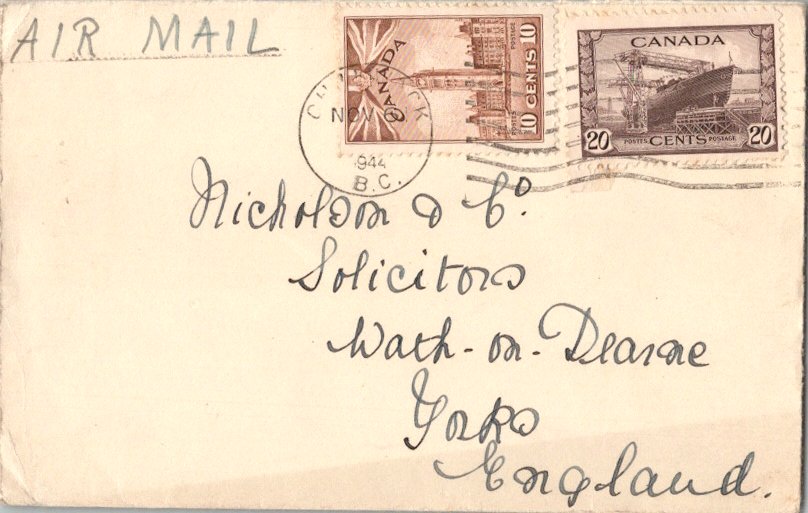 AIR MAIL
CANADA
10 CENTS 10
POSTES POSTAGE
CANADA
20 CENTS 20
POSTES POSTAGE
NOV 6
1944
B.C.
Nicholson & Co.
Solicitors
Wath-on-Dearne
Yorks
England.